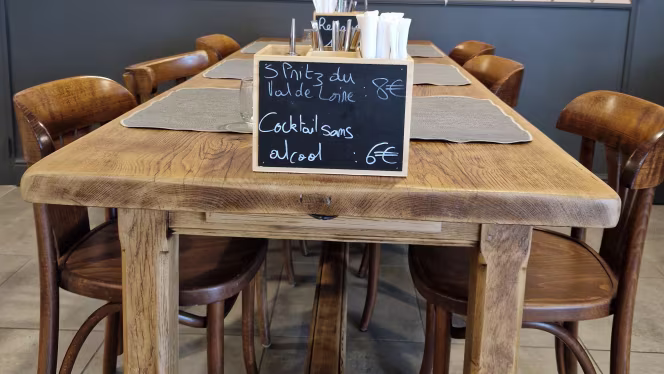 Spritz du
Val de Loire : 8€
Cocktail sans
alcool : 6€